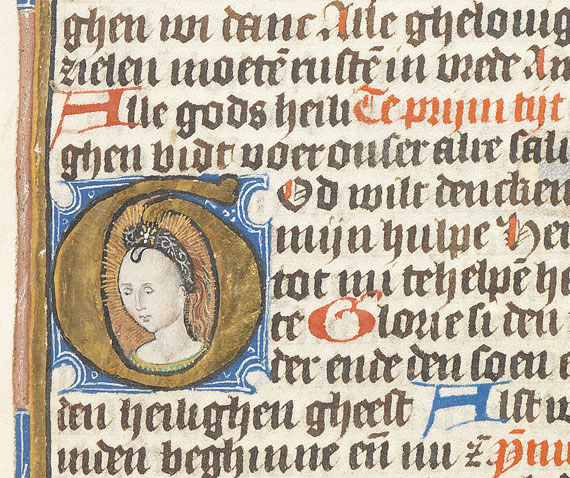 ghen wi danc Alle ghelouig
zielen moetē rustē in vrede An
Alle gods heili Te prijm tijt
ghen bidt voer onser alre sali
God wilt dencken
mijn hulpe Her
tot mi te helpē he
te Glorie si den
der ende den soen e
den heilighen gheest Alst w
inden beghinne en̄ nu z̄ p̄nu